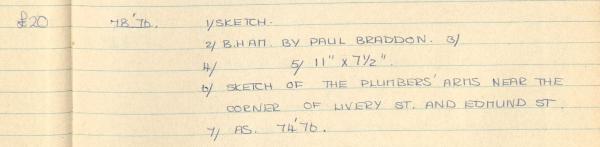 £20 78'76. 1/ SKETCH.
2/ B.HAM. BY PAUL BRADDON. 3/
4/ 5/ 11" x 7½".
6/ SKETCH OF THE PLUMBERS' ARMS NEAR THE
CORNER OF LIVERY ST. AND EDMUND ST.
7/ AS. 74'76.